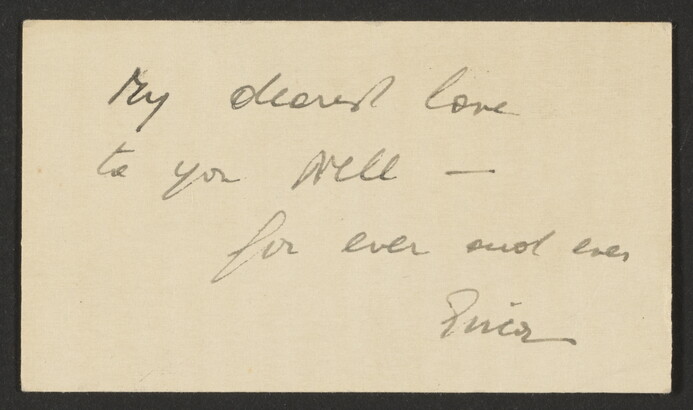 My dearest love
to you Nell —
for ever and ever
Erica